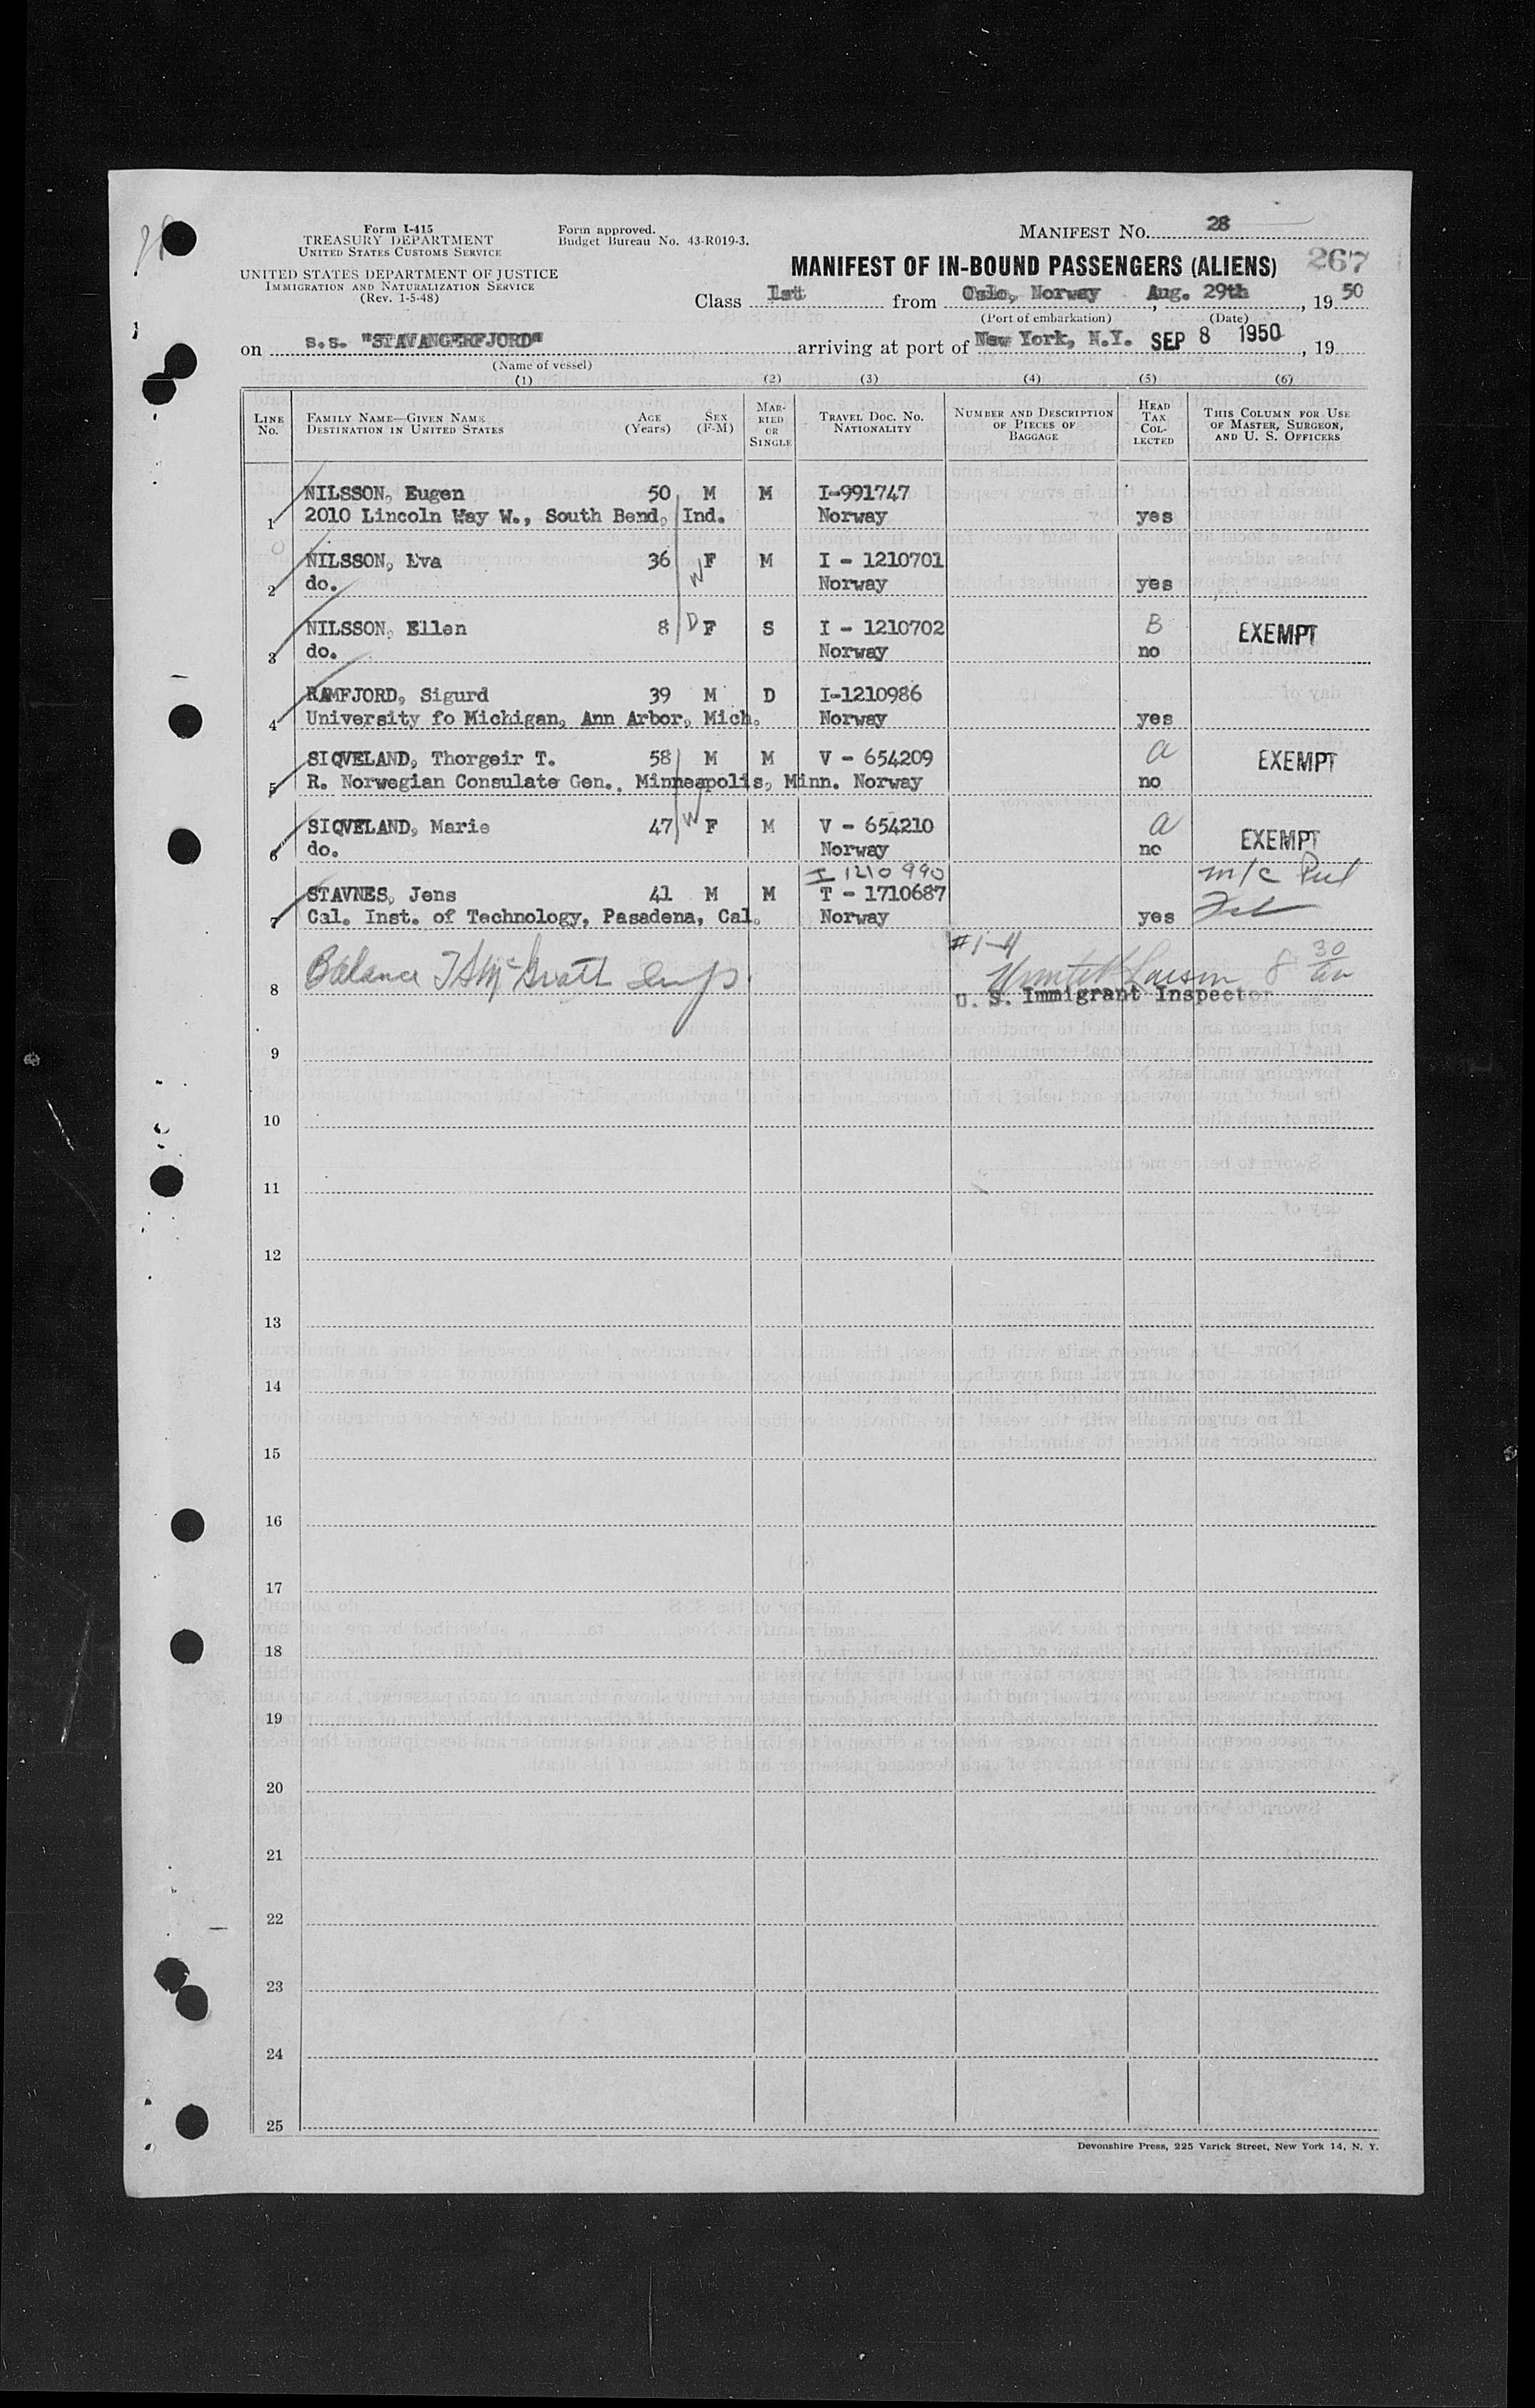 Form I-415
TREASURY DEPARTMENT
UNITED STATES CUSTOMS SERVICE
UNITED STATES DEPARTMENT OF JUSTICE
IMMIGRATION AND NATURALIZATION SERVICE
(Rev. 1-5-48)
Form approved.
Budget Bureau No. 43-R019-3.
MANIFEST NO. 28
MANIFEST OF IN-BOUND PASSENGERS (ALIENS) 267
Class 1st from Oslo, Norway, Aug. 29th, 19 50
(Port of embarkation) (Date)
on s.s. "STAVANGERFJORD" arriving at port of New York, N.Y. SEP 8 1950, 19
(Name of vessel)
(1) (2) (3) (4) (5) (6)
LINE NO. FAMILY NAME—GIVEN NAME DESTINATION IN UNITED STATES AGE (YEARS) SEX (F-M) MARRIED OR SINGLE TRAVEL DOC. NO. NATIONALITY NUMBER AND DESCRIPTION OF PIECES OF BAGGAGE HEAD TAX COLLECTED THIS COLUMN FOR USE OF MASTER, SURGEON, AND U. S. OFFICERS
NILSSON, Eugen 50 M M I-991747
1 2010 Lincoln Way W., South Bend, Ind. Norway yes
NILSSON, Eva 36 W F M I - 1210701
2 do. Norway yes
NILSSON, Ellen 8 D F S I - 1210702 B EXEMPT
3 do. Norway no
RAMFJORD, Sigurd 39 M D I-1210986
4 University fo Michigan, Ann Arbor, Mich. Norway yes
SIQVELAND, Thorgeir T. 58 M M V - 654209 a EXEMPT
5 R. Norwegian Consulate Gen., Minneapolis, Minn. Norway no
SIQVELAND, Marie 47 W F M V - 654210 a EXEMPT
6 do. Norway no
I 1210990 m/c
STAVNES, Jens 41 M M T - 1710687
7 Cal. Inst. of Technology, Pasadena, Cal. Norway yes
#1-4
8 Balance McGrath Larson 8 30
U. S. Immigrant Inspector
9
10
11
12
13
14
15
16
17
18
19
20
21
22
23
24
25
Devonshire Press, 225 Varick Street, New York 14, N. Y.